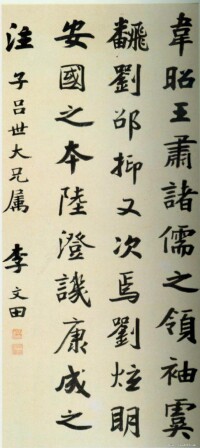 韋昭王肅諸儒之領袖虞
翻劉邵抑又次焉劉炫明
安國之本陸澄譏康成之
注
子呂世大兄属 李文田